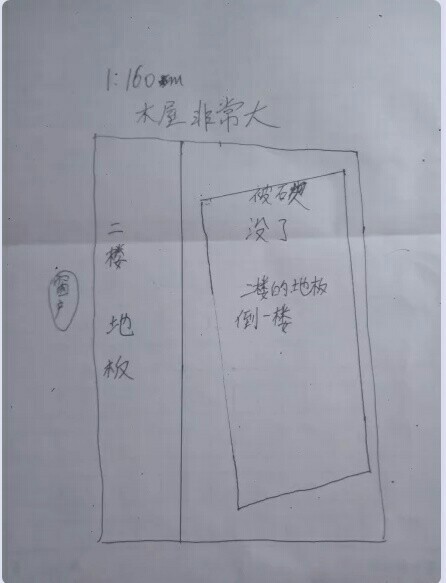 1:160m
木屋非常大
被砸
没了
二楼的地板
倒一楼
二楼 地板
窗户